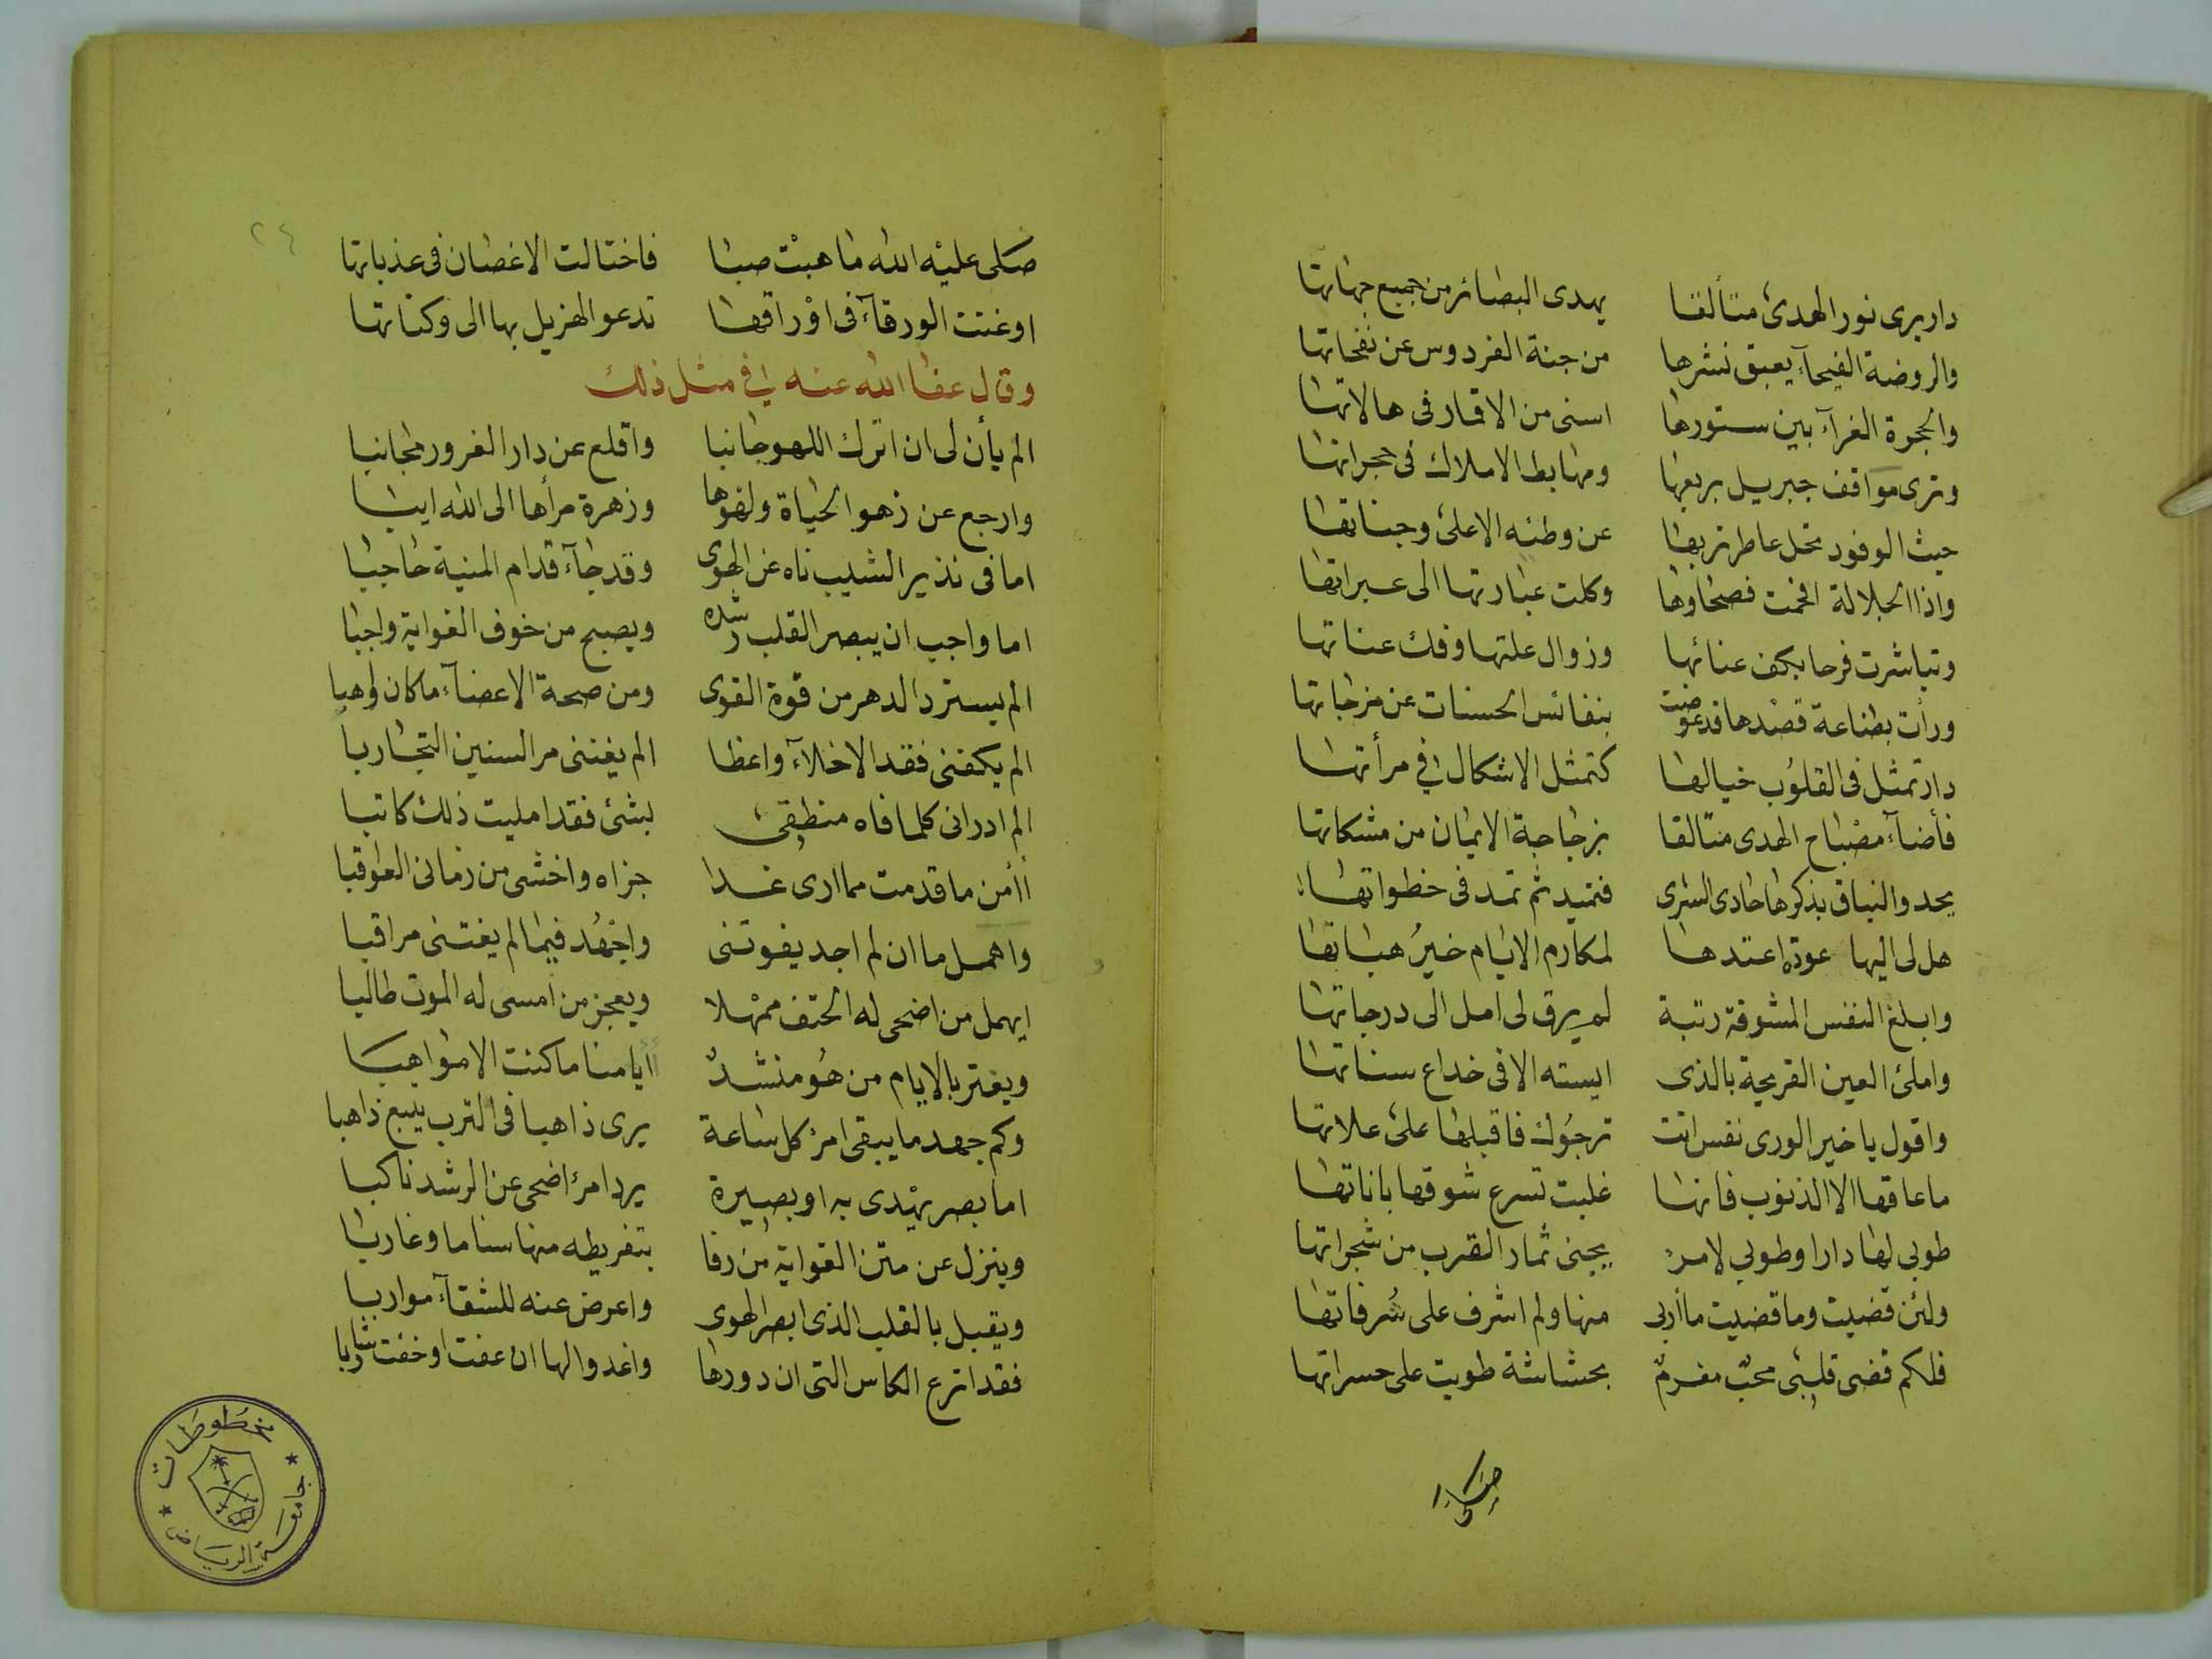 دار يرى نور الهدى متألقا يهدى البصائر من جميع جهاتها
والروضة الفيحآء يعبق نشرها من جنة الفردوس عن نفحاتها
والحجرة الغرآء بين ستورها اسنى من الاقمار فى هالاتها
وترى مواقف جبريل بربعها ومهابط الاملاك فى حجراتها
حيث الوفود تحل عاطر تربها عن وطئه الاعلى وجناتها
واذا الجلالة افحمت فصحاوها وكلت عبارتها الى عبراتها
وتباشرت فرحا بكف عنائها وزوال علتها وفك عناتها
ورأت بضاعة قصدها قد عوضت بنفائس الحسنات عن مزجاتها
دار تمثل فى القلوب خيالها كتمثل الاشكال فى مرأتها
فأضآء مصباح الهدى متالقا بزجاجة الايمان من مشكاتها
يحدو النياق بذكرها حادى السرى فتميد ثم تمد فى خطواتها
هل لى اليها عودة اعتدها لمكارم الايام خير هباتها
وابلغ النفس المشوقة رتبة لم يرق لى امل الى درجاتها
واملئ العين القريحة بالذى ايسته الا فى خداع سناتها
واقول يا خير الورى نفس اتت ترجوك فاقبلها على علاتها
ما عاقها الا الذنوب فانها غلبت تسرع شوقها باناتها
طوبى لها دارا وطوبى لامرئ يجنى ثمار القرب من شجراتها
ولئن قضيت وما قضيت مأربى منها ولم اشرف على شرفاتها
فلكم قضى قلبى محب مغرم بحشاشة طويت على حسراتها
صلى
٢٤
صلى عليه الله ما هبت صبا فاختالت الاغصان فى عذباتها
او غنت الورقآء فى اوراقها تدعو الهزيل بها الى وكناتها
وقال عفا الله عنه في مثل ذلك
الم يأن لى ان اترك اللهو جانبا واقلع عن دار الغرور مجانبا
وارجع عن زهو الحياة ولهوها وزهرة مرأها الى الله ايبا
اما فى نذير الشيب ناه عن الهوى وقد جآء قدام المنية حاجبا
اما واجب ان يبصر القلب رشده ويصبح من خوف الغواية واجبا
الم يسترد الدهر من قوة القوى ومن صحة الاعضآء ما كان واهبا
الم يكفنى فقد الاخلآء واعظا الم يغننى مر السنين التجاربا
الم ادر انى كلما فاه منطقى بشئ فقد امليت ذلك كاتبا
أأمن ما قدمت مما ارى غدا جزاه واخشى من زمانى العواقبا
واهمل ما ان لم اجد يفوتنى واجهد فيما لم يفتنى مراقبا
ايهمل من اضحى له الحتف ممهلا ويعجز من امسى له الموت طالبا
ويغتر بالايام من هو منشد أايامنا ما كنت الا مواهبا
وكم جهد ما يبقى امرئ كل ساعة يرى ذاهبا فى الترب يتبع ذاهبا
اما بصر يهدى به او بصيرة يرد امرئ اضحى عن الرشد ناكبا
وينزل عن متن الغواية من رقا بتفريطه منها سناما وغاربا
ويقبل بالقلب الذى ابصر الهوى واعرض عنه للشقآء مواربا
فقد اترع الكاس التى ان دورها واغدو الها ان عفت او خفت شاربا
مخطوطات
جامعة الرياض